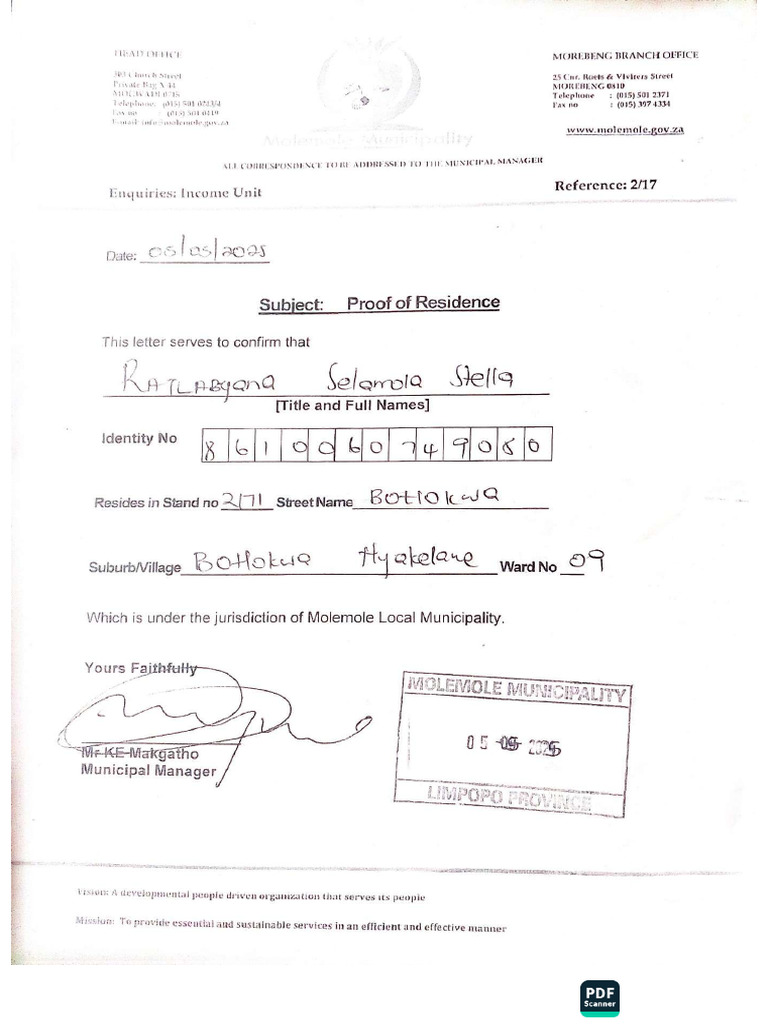 HEAD OFFICE
303 Church Street
Private Bag X 44
MOGWADI 0715
Telephone: (015) 501 0243/4
Fax no : (015) 501 0419
E-mail: info@molemole.gov.za
Molemole Municipality
MOREBENG BRANCH OFFICE
25 Cnr. Roets & Viviers Street
MOREBENG 0810
Telephone : (015) 501 2371
Fax no : (015) 397 4334
www.molemole.gov.za
ALL CORRESPONDENCE TO BE ADDRESSED TO THE MUNICIPAL MANAGER
Enquiries: Income Unit
Reference: 2/17
Date: 05/05/2025
Subject: Proof of Residence
This letter serves to confirm that
RATLAByana Selamola Stella
[Title and Full Names]
Identity No 8 6 1 0 0 6 0 7 4 9 0 8 0
Resides in Stand no 2171 Street Name Botlokwa
Suburb/Village Botlokwa Nyakelane Ward No 09
Which is under the jurisdiction of Molemole Local Municipality.
Yours Faithfully
Mr KE Makgatho
Municipal Manager
MOLEMOLE MUNICIPALITY
05
LIMPOPO PROVINCE
Vision: A developmental people driven organization that serves its people
Mission: To provide essential and sustainable services in an efficient and effective manner
PDF
Scanner